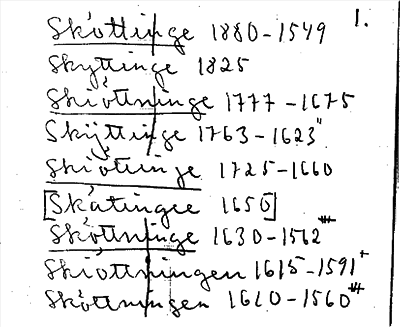 1.
Sköttinge 1880-1549
Skyttinge 1825
Skiöttninge 1777-1675
Skÿttinge 1763-1623"
Skiöttinge 1725-1660
[Skåtingee 1650]
Sköttninge 1630-1562
Skiöttningen 1615-1591+
Sköttningen 1610-1560